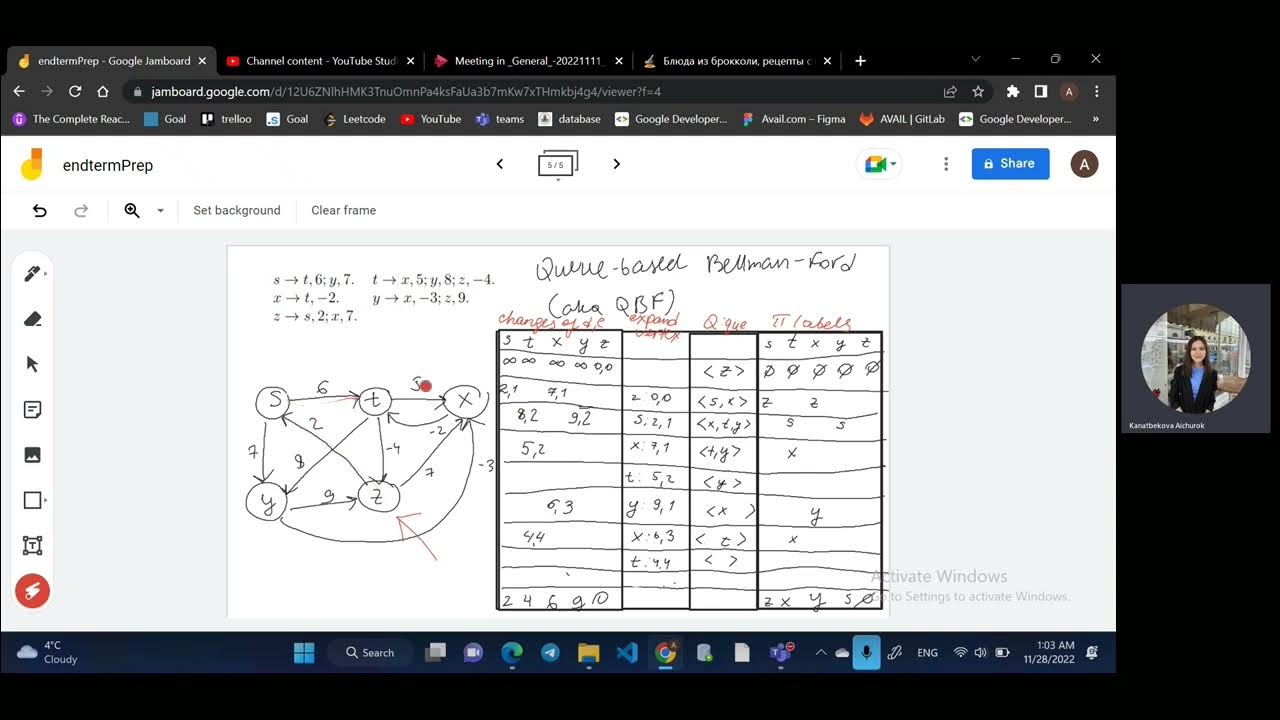 endtermPrep - Google Jamboard
Channel content - YouTube Stud
Meeting in _General_-20221111_
Блюда из брокколи, рецепты с
jamboard.google.com/d/12U6ZNlhHMK3TnuOmnPa4ksFaUa3b7mKw7xTHmkbj4g4/viewer?f=4
A
The Complete Reac...
Goal
trelloo
Goal
Leetcode
YouTube
teams
database
Google Developer...
Avail.com – Figma
AVAIL | GitLab
Google Developer...
»
endtermPrep
5 / 5
Share
A
Set background
Clear frame
s → t, 6; y, 7. t → x, 5; y, 8; z, −4.
x → t, −2. y → x, −3; z, 9.
z → s, 2; x, 7.
Queue-based Bellman-Ford
(aka QBF)
changes of d,c expand vertex Q:que π labels
s t x y z s t x y z
∞ ∞ ∞ ∞ 0,0 <z> ∅ ∅ ∅ ∅ ∅
2,1 7,1 z:0,0 <s,x> z z
8,2 9,2 s:2,1 <x,t,y> s s
5,2 x:7,1 <t,y> x
t:5,2 <y>
6,3 y:9,1 <x > y
4,4 x:6,3 < t> x
t:4,4 < >
2 4 6 9 0 z x y s ∅
S 6 t 5 x
2 -2
7 8 -4 7 -3
y 9 z
Activate Windows
Go to Settings to activate Windows.
Kanatbekova Aichurok
4°C
Cloudy
Search
ENG
1:03 AM
11/28/2022